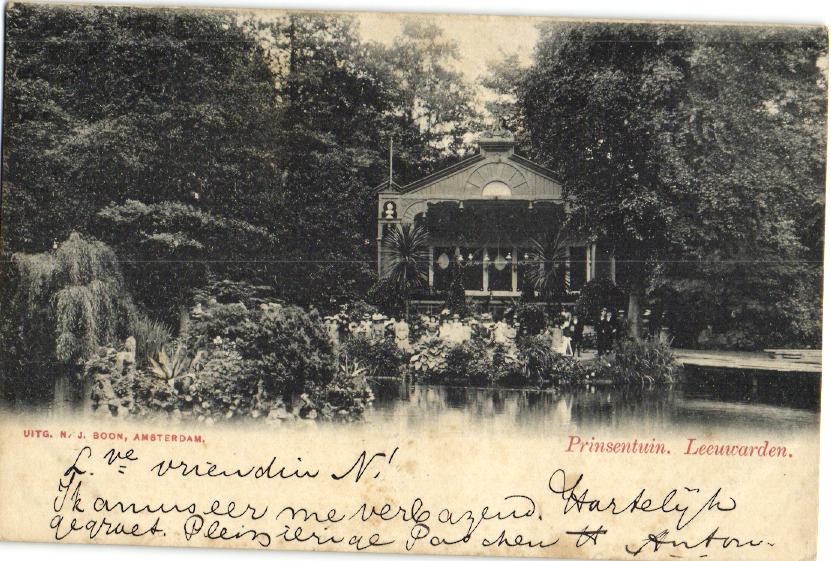 UITG. N. J. BOON, AMSTERDAM.
Prinsentuin. Leeuwarden.
L.ve vriendin N!
Ik amuseer me verbazend. Hartelijk
gegroet. Pleizierige Paschen tt Anton.